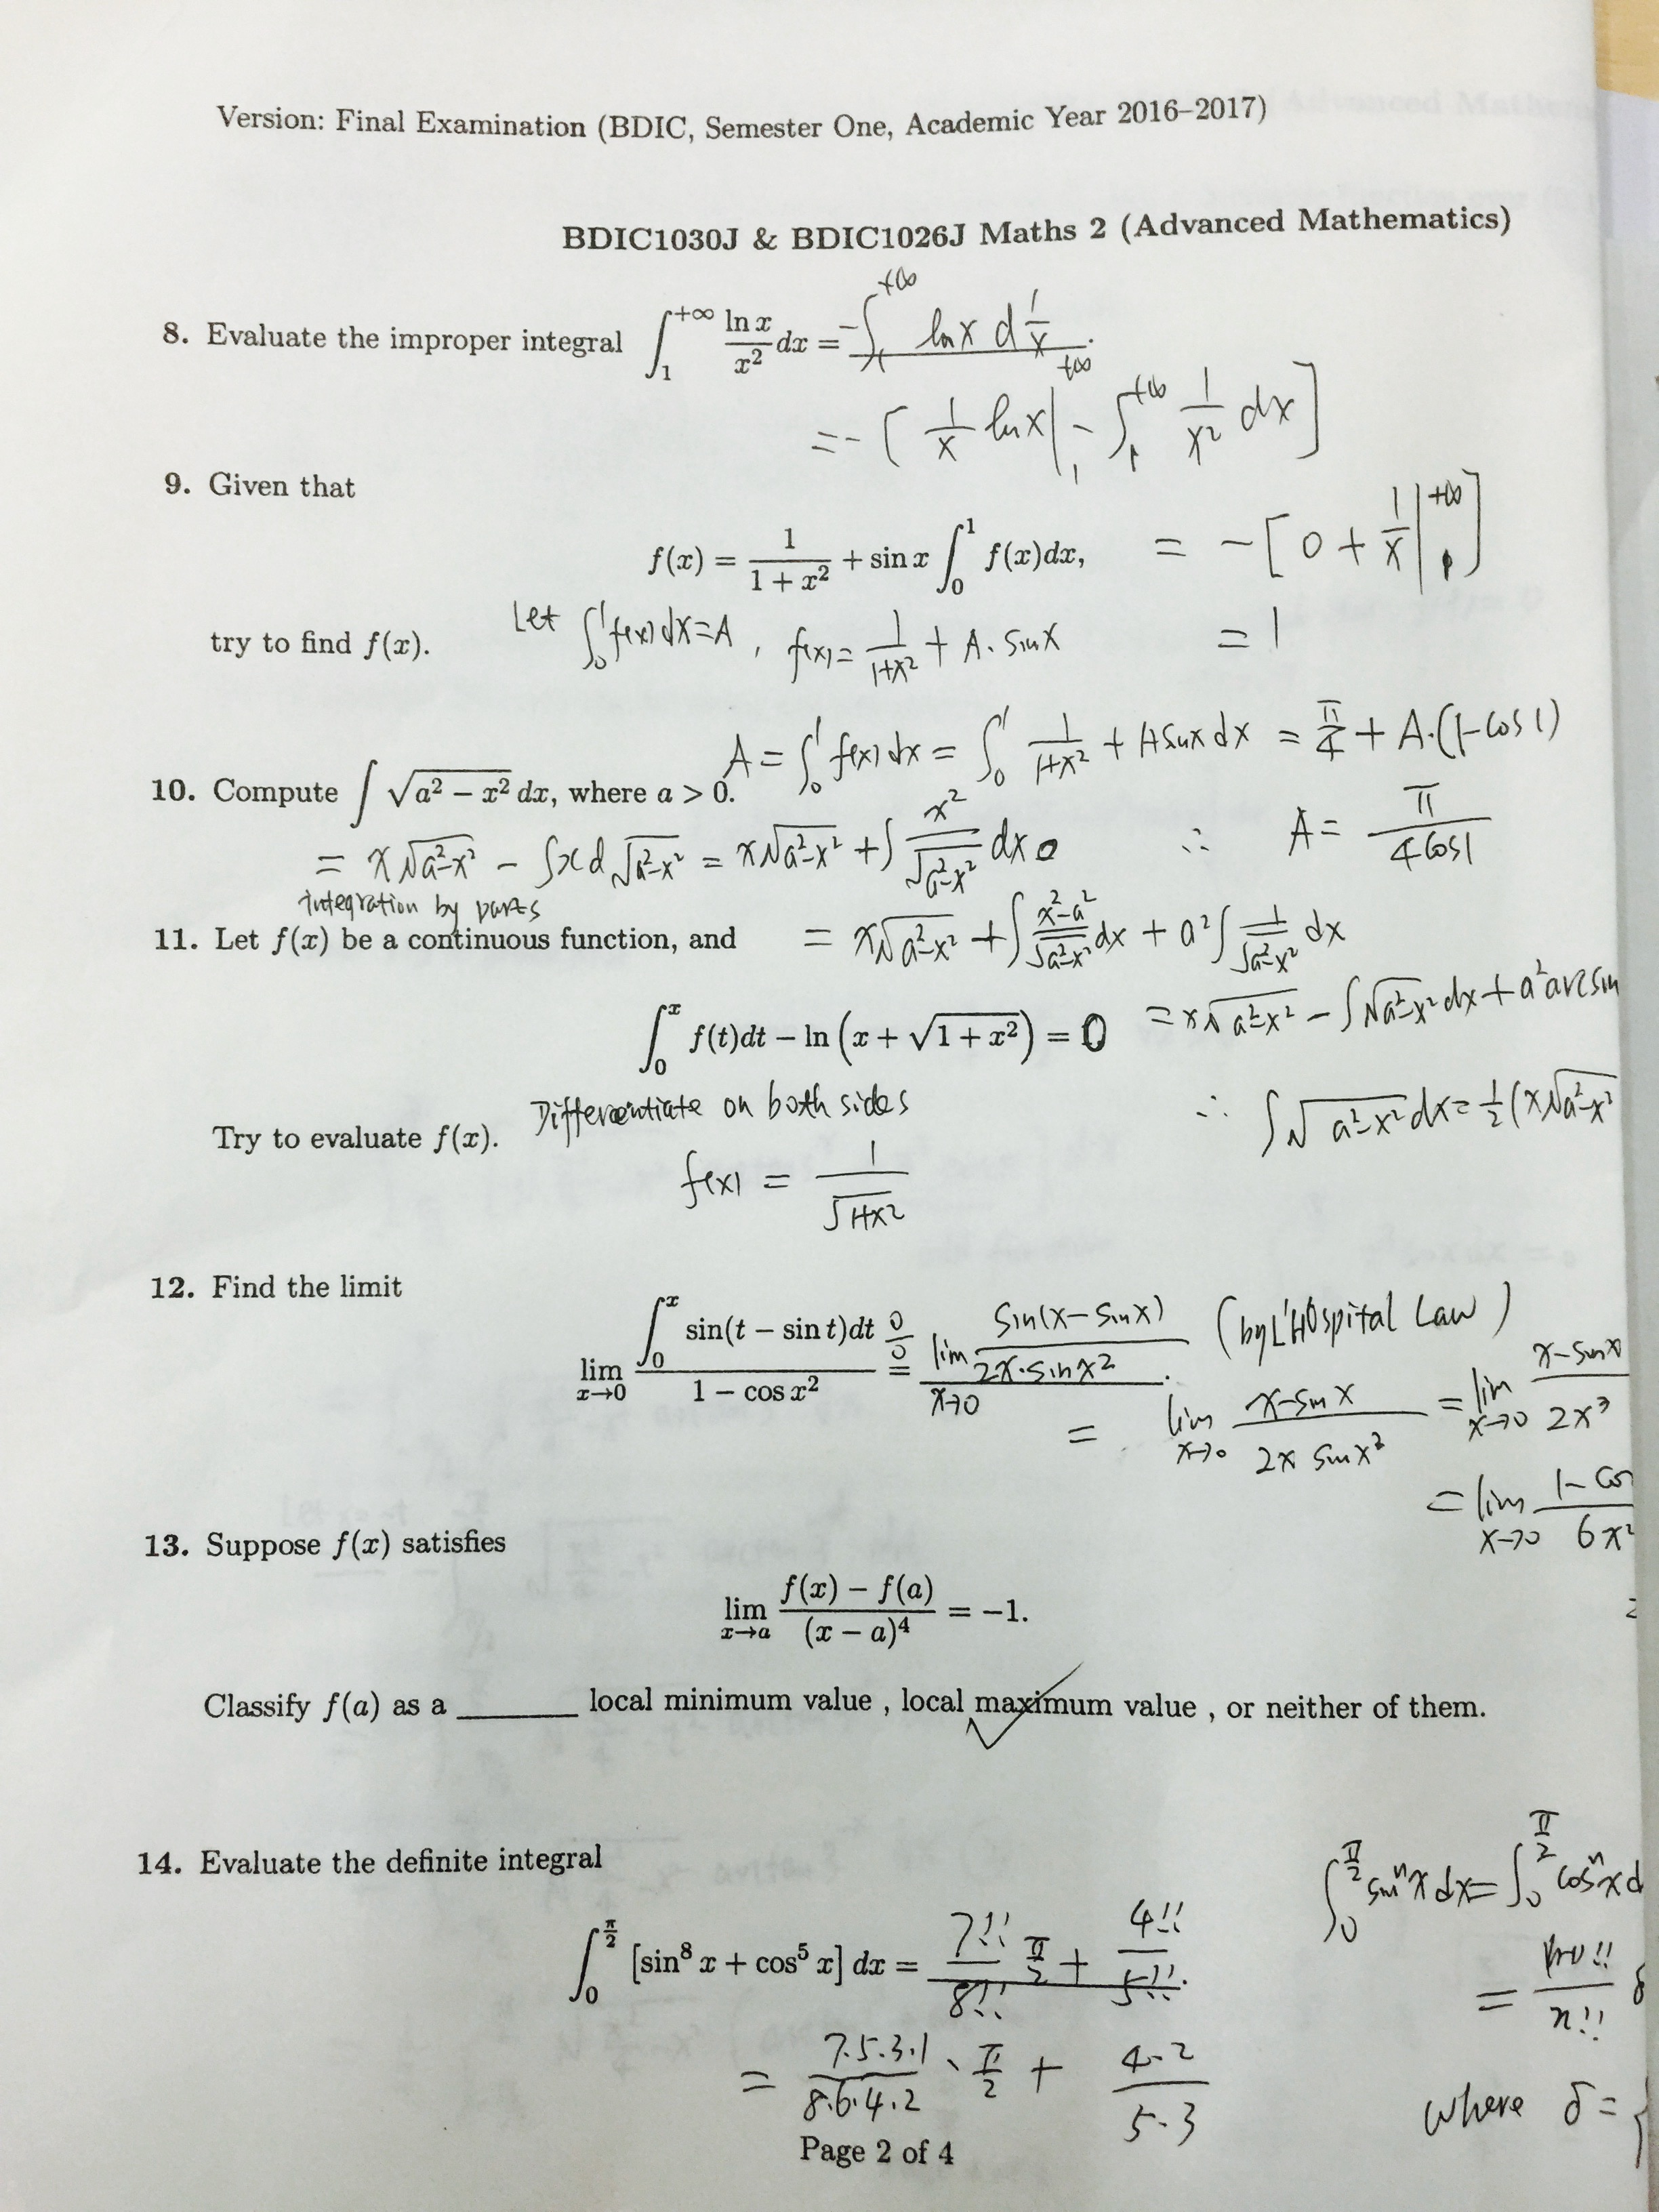 Version: Final Examination (BDIC, Semester One, Academic Year 2016–2017)
BDIC1030J & BDIC1026J Maths 2 (Advanced Mathematics)
8. Evaluate the improper integral ∫_1^{+∞} ln x / x² dx = -∫_1^{+∞} ln x d 1/x .
= -[ 1/x ln x |_1^{+∞} - ∫_1^{+∞} 1/x² dx ]
9. Given that
f(x) = 1/(1 + x²) + sin x ∫_0^1 f(x)dx, = -[ 0 + 1/x |_1^{+∞} ]
try to find f(x). Let ∫_0^1 f(x)dx = A , f(x) = 1/(1+x²) + A · sin x = 1
A = ∫_0^1 f(x) dx = ∫_0^1 1/(1+x²) + A sin x dx = π/4 + A·(1-cos 1)
10. Compute ∫ √(a² − x²) dx, where a > 0. ∴ A = π/(4cos1)
= x√(a²-x²) - ∫x d√(a²-x²) = x√(a²-x²) + ∫ x²/√(a²-x²) dx
integration by parts
11. Let f(x) be a continuous function, and = x√(a²-x²) + ∫ (x²-a²)/√(a²-x²) dx + a² ∫ 1/√(a²-x²) dx
∫_0^x f(t)dt − ln (x + √(1 + x²)) = 0 = x√(a²-x²) - ∫√(a²-x²) dx + a² arcsin
Try to evaluate f(x). Differentiate on both sides ∴ ∫√(a²-x²) dx = 1/2 (x√(a²-x²)
f(x) = 1/√(1+x²)
12. Find the limit
lim_{x→0} ∫_0^x sin(t − sin t)dt / (1 − cos x²) =^{0/0} lim_{x→0} sin(x-sin x) / (2x·sin x²) . (by L'Hospital Law)
= lim_{x→0} (x-sin x) / (2x sin x²) = lim_{x→0} (x-sin x) / 2x³
= lim_{x→0} 1-cos / 6x²
13. Suppose f(x) satisfies
lim_{x→a} (f(x) − f(a)) / (x − a)⁴ = −1.
Classify f(a) as a ______ local minimum value , local maximum value , or neither of them.
14. Evaluate the definite integral ∫_0^{π/2} sinⁿ x dx = ∫_0^{π/2} cosⁿ x d
∫_0^{π/2} [sin⁸ x + cos⁵ x] dx = 7!!/8!! π/2 + 4!!/5!! .
= 7·5·3·1 / 8·6·4·2 · π/2 + 4·2 / 5·3
where δ = {
Page 2 of 4